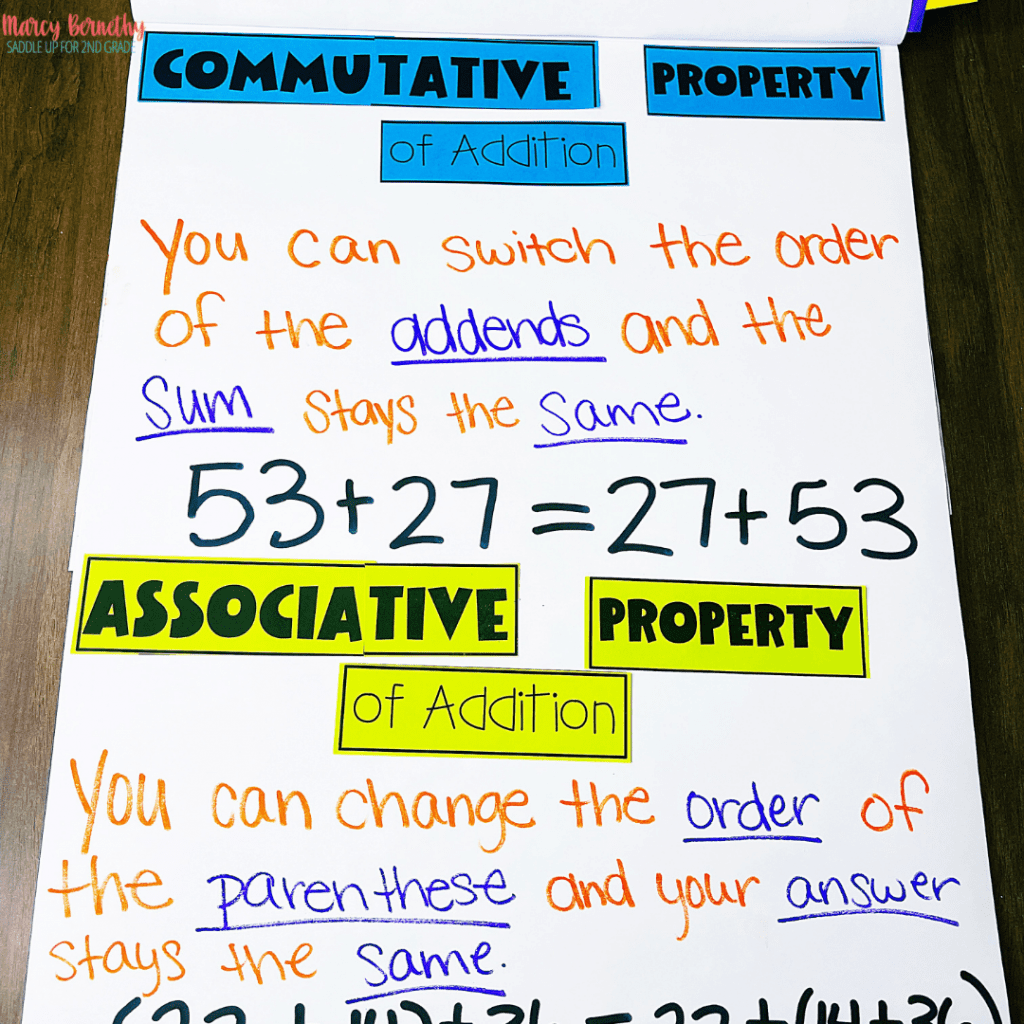 Marcy Bernethy
SADDLE UP FOR 2ND GRADE
COMMUTATIVE PROPERTY
of Addition
You can switch the order
of the addends and the
sum stays the same.
53+27=27+53
ASSOCIATIVE PROPERTY
of Addition
You can change the order of
the parenthese and your answer
stays the same.